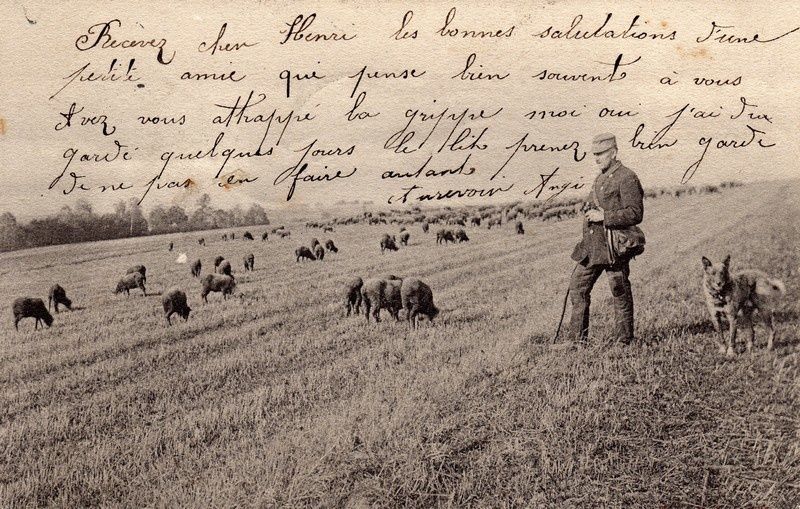 Recevez cher Henri les bonnes salutations d'une
petite amie qui pense bien souvent à vous
Avez vous athappé la grippe moi oui j'ai du
gardé quelques jours le lit prenez bien garde
de ne pas en faire autant
Aurevoir Angi